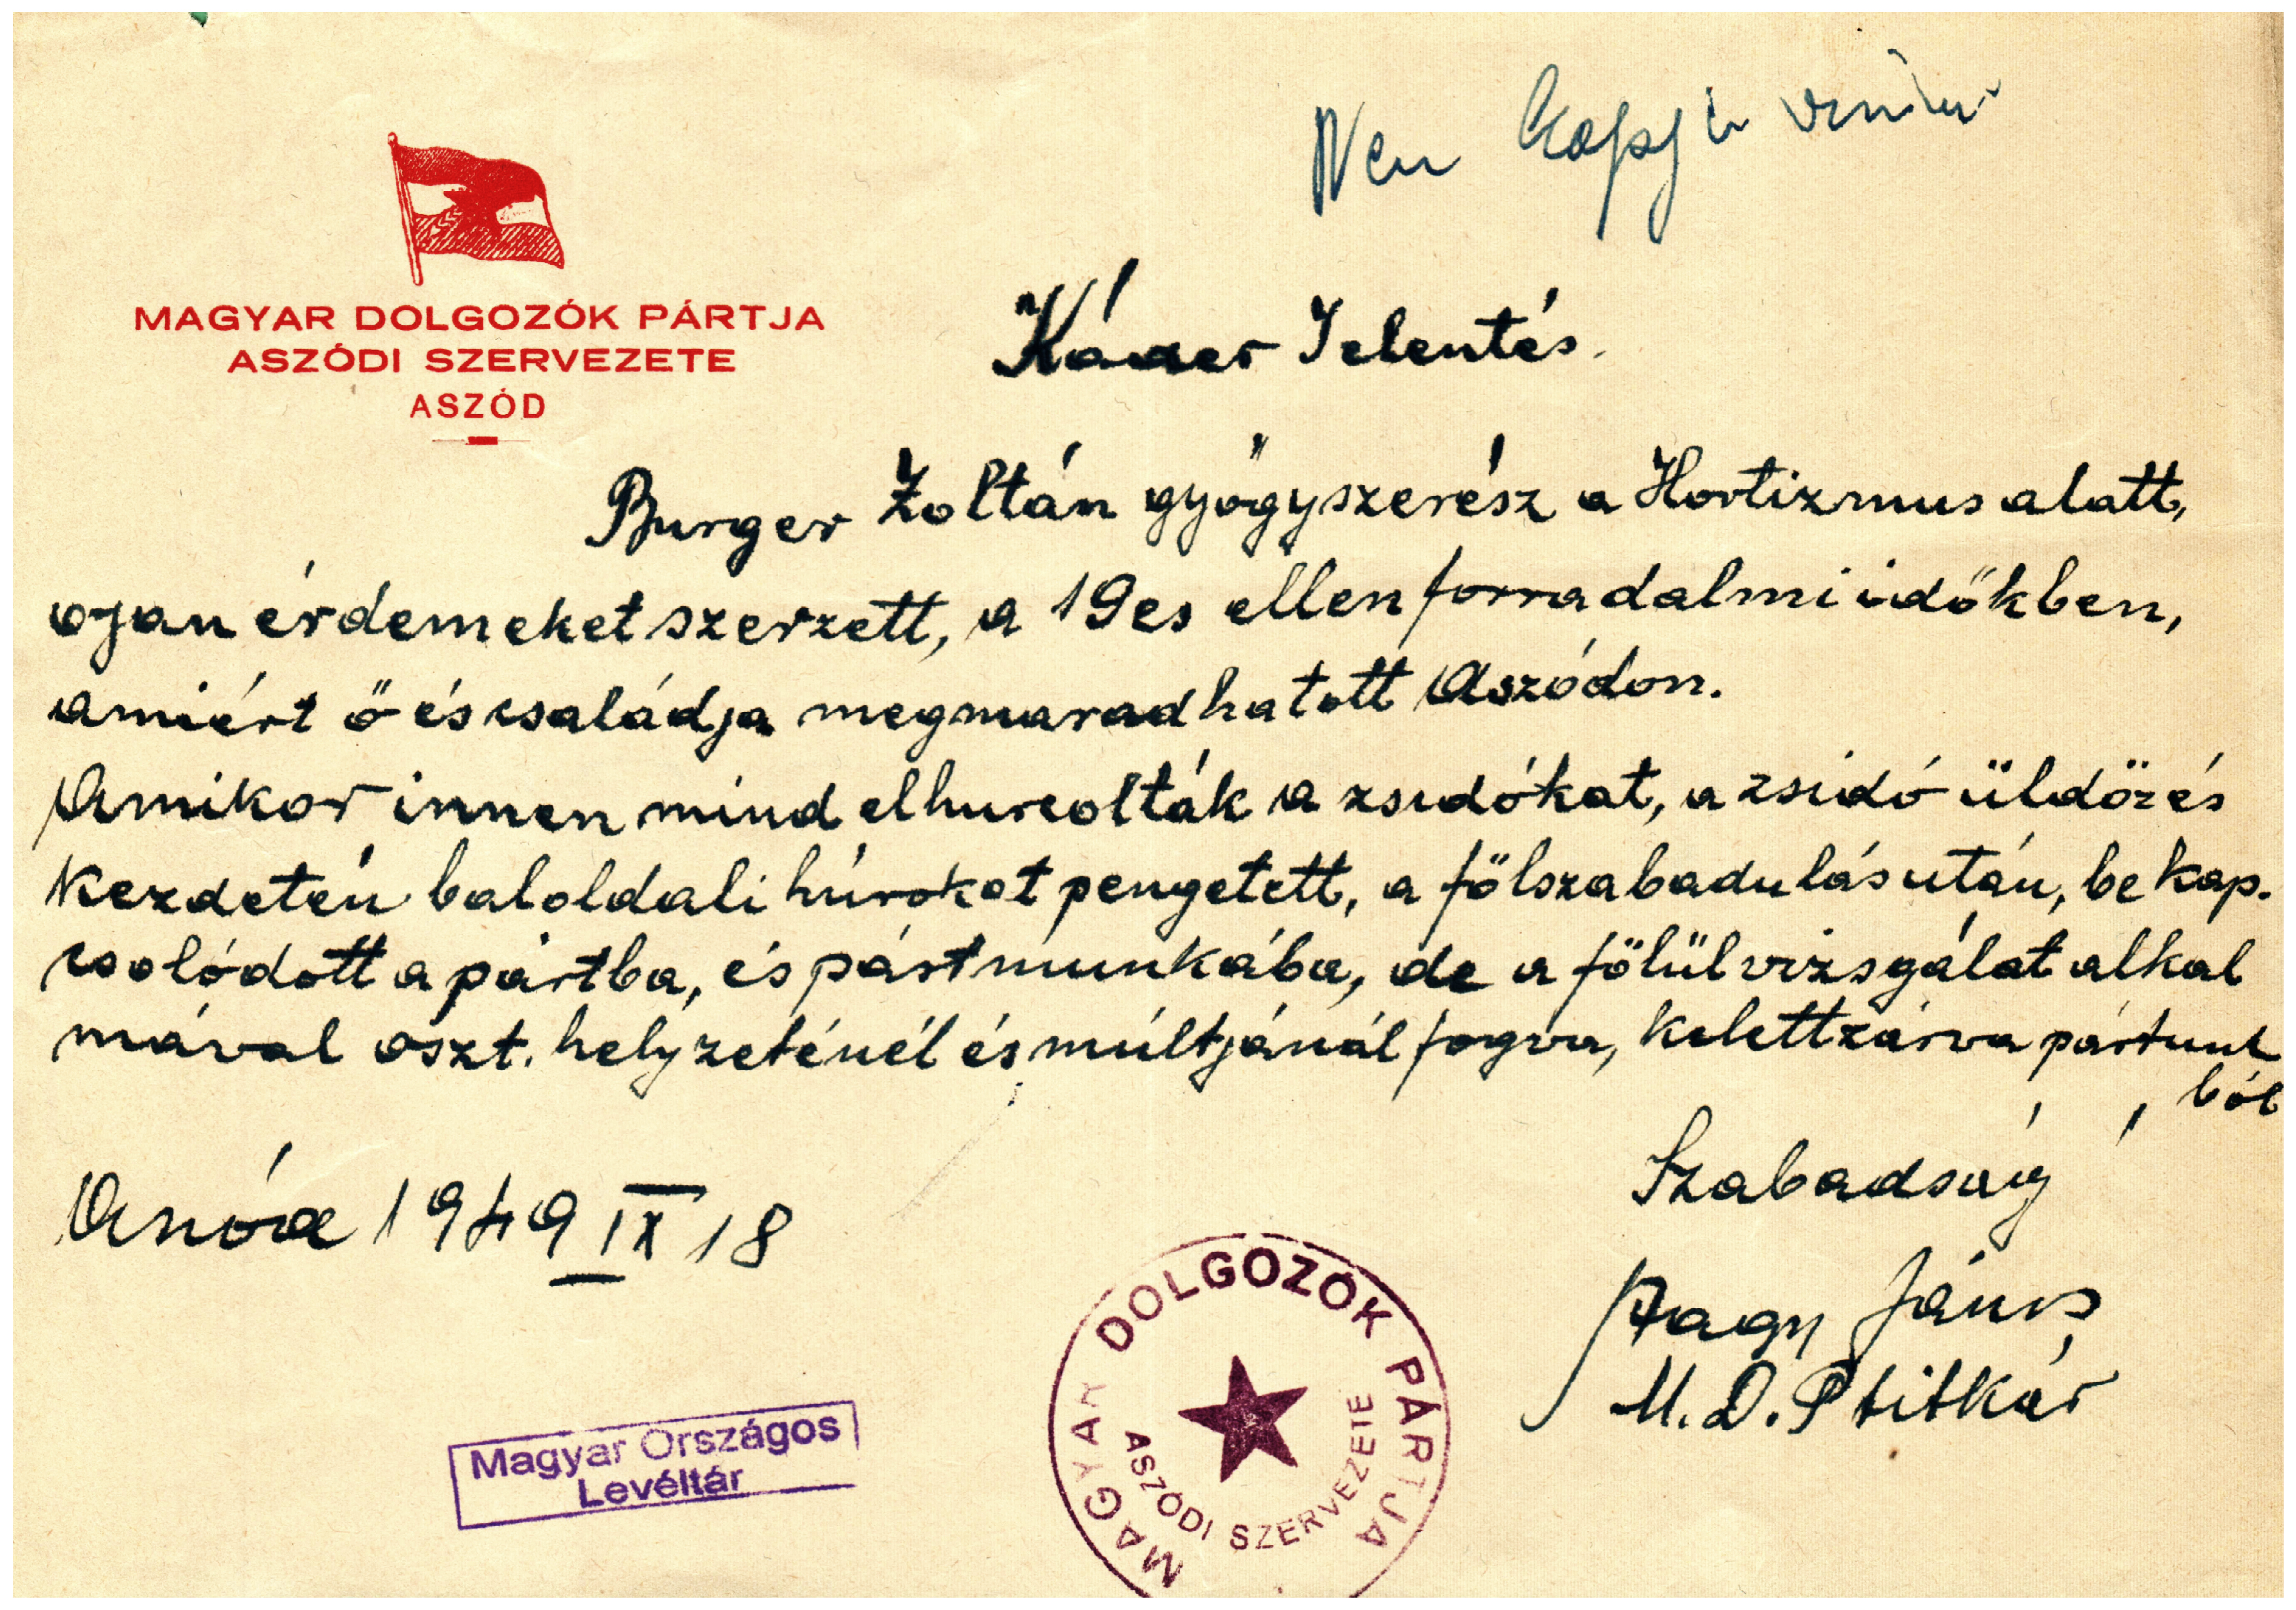 Nem kapja vissza
MAGYAR DOLGOZÓK PÁRTJA
ASZÓDI SZERVEZETE
ASZÓD
Káder Jelentés.
Burger Zoltán gyógyszerész a Hortizmus alatt,
ojan érdemeket szerzett, a 19es ellenforradalmi időkben,
amiért ő és családja megmaradhatott Aszódon.
Amikor innen mind elhurcolták a zsidókat, a zsidó üldözés
kezdetén baloldali húrokat pengetett, a fölszabadulás után, be kap.
csolódott a pártba, és pártmunkába, de a fölülvizsgálat alkal
mával oszt. helyzeténél és múltjánál fogva, kelettzárva pártunk
ból
Szabadság
Aszód 1949 IX 18
Nagy János
M.D.P titkár
MAGYAR DOLGOZÓK PÁRTJA
ASZÓDI SZERVEZETE
Magyar Országos
Levéltár